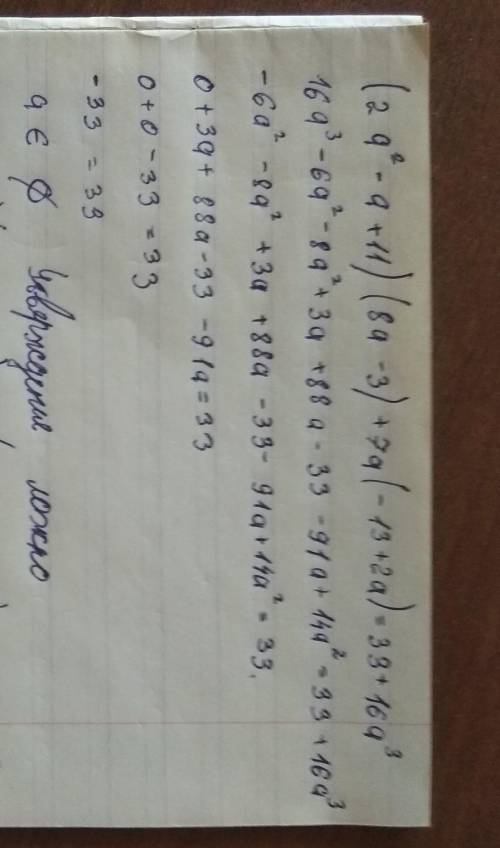 (2a² - a + 11) (8a - 3) + 7a(-13 + 2a) = 33 + 16a³
16a³ - 6a² - 8a² + 3a + 88a - 33 - 91a + 14a² = 33 + 16a³
-6a² - 8a² + 3a + 88a - 33 - 91a + 14a² = 33
0 + 3a + 88a - 33 - 91a = 33
0 + 0 - 33 = 33
-33 = 33
a ∈ ∅ Утверждение ложно